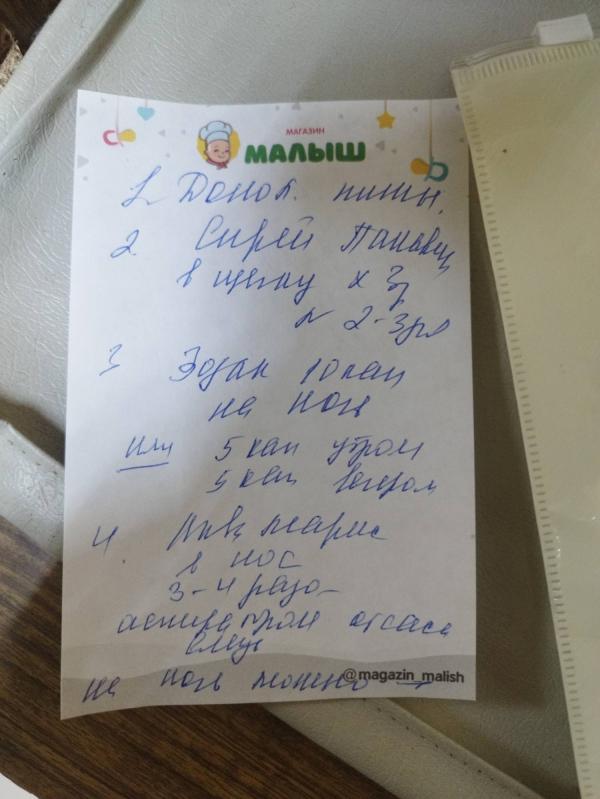 МАГАЗИН
МАЛЫШ
1. Допол. питы.
2. Спрей
в щеку х 3р
N 2-3 дня
3 Зодак 10 кап
на ночь
или 5 кап утром
5 кап вечером
4 Аква марис
в нос
3-4 раза
аспиратором отсас
слизь
на ночь можно
@magazin_malish